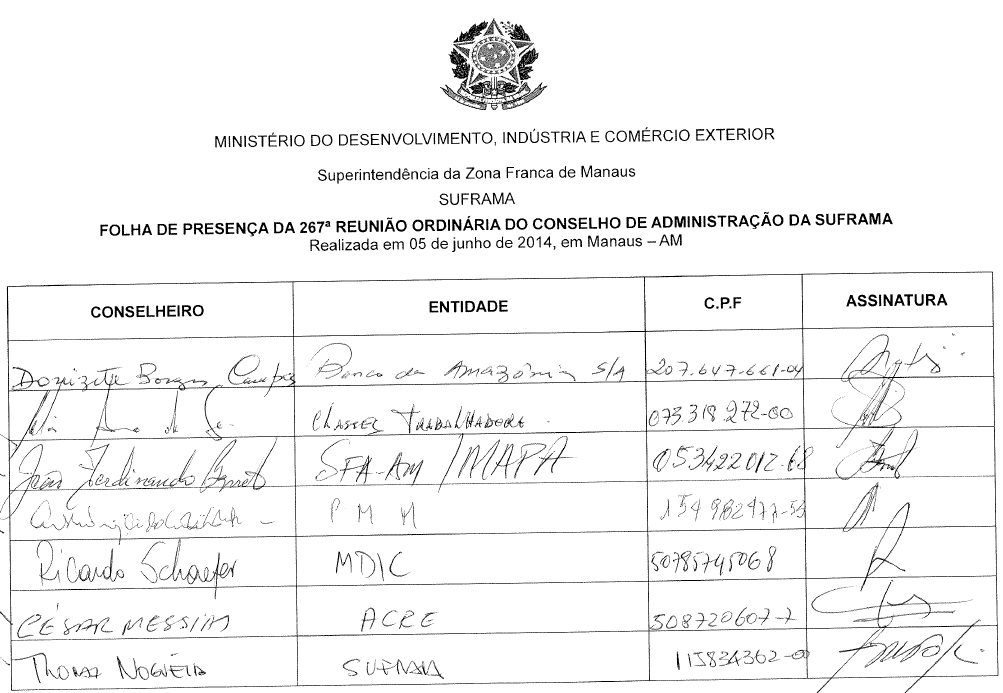 MINISTÉRIO DO DESENVOLVIMENTO, INDÚSTRIA E COMÉRCIO EXTERIOR
Superintendência da Zona Franca de Manaus
SUFRAMA
FOLHA DE PRESENÇA DA 267ª REUNIÃO ORDINÁRIA DO CONSELHO DE ADMINISTRAÇÃO DA SUFRAMA
Realizada em 05 de junho de 2014, em Manaus – AM
CONSELHEIRO ENTIDADE C.P.F ASSINATURA
Donizete Borges Campos Banco da Amazônia S/A 207.647.661-04
CLASSES TRABALHADORA 073.318.272-00
João Ferdinando Barreto SFA-AM/MAPA 053422012-68
PMM
Ricardo Schaefer MDIC 50785745068
CÉSAR MESSIAS ACRE 508720607-7
THOMAZ NOGUEIRA SUFRAMA 115834362-00